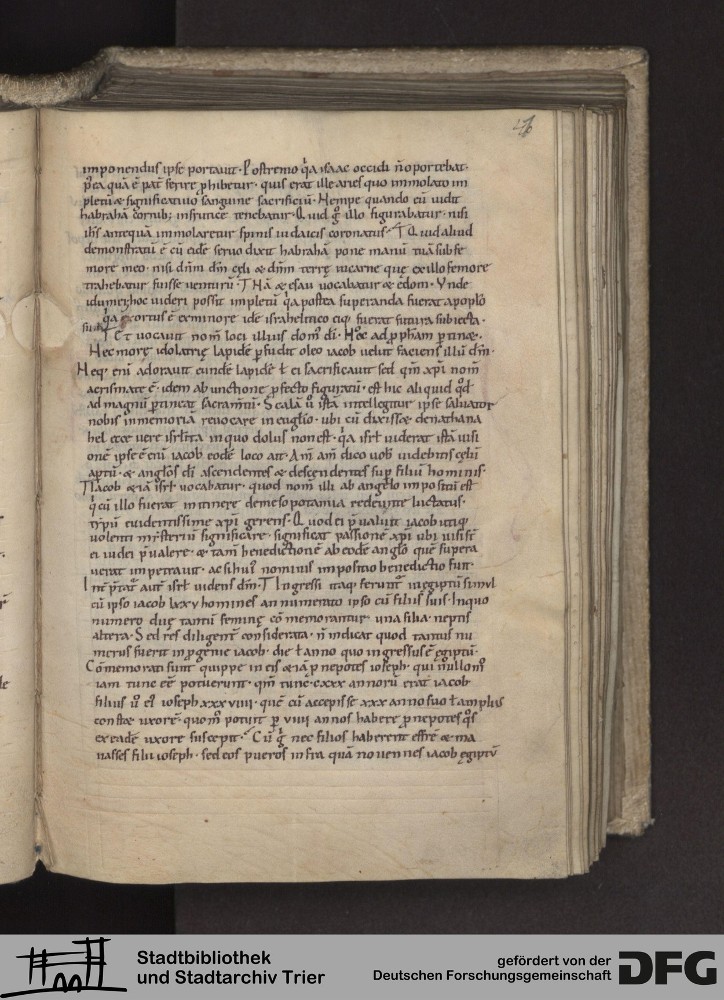 46
imponendus ipse portauit. Postremo q̇a isaac occidi ñ oportebat.
p̾ea quā ē pat̃ ferire p̱hibetur. quis erat ille aries quo immolato im
pletū & significatiuo sanguine sacrificiū. Nempe quando eū uidit
habrahā cornib; in frutice tenebatur. Quid g̊ illo figurabatur. nisi
ih̄s antequā immolaretur spinis iudaicis coronatus. Quid aliud
demonstratū ē cū eidē seruo dixit habrahā pone manū tuā sub fe
more meo. nisi dñm dm̄ cęli & dñm terrę in carne que ex illo femore
trahebatur fuisse uenturū. Nā & esau uocabatur & edom. Vnde
idumeis hoc uideri possit impletū q̇a postea superanda fuerat a poplō
q̇a exortus ē ex minore idē israhelitico eiq; fuerat futura subiecta.
suū
Et uocauit nom̄ loci illius dom̄ dī. Hoc ad p̱phām p̱tin&.
Nec more idolatrię lapidē p̱fudit oleo iacob uelut faciens illū dm̄.
Neq; enī adorauit eundē lapidē ł ei sacrificauit sed qm̄ xp̄i nom̄
a crismate ē. idem ab unctione p̱fecto figuratū. est hic aliquid qd̄
ad magnū p̱tineat sacram̄tū. Scalā ů istā intellegitur ipse saluator
nobis in memoriā reuocare in euglīo. ubi cū dixiss& de nathana
hel ecce uere isrl̄ita in quo dolus non est. q̇a isrl̄ uiderat istā uisi
onē ipse ē enī iacob eodē loco ait. Am̄ am̄ dico uob̄ uidebitis cęlū
aptū. & anglōs dī ascendentes & descendentes sup̱ filiū hominis.
Iacob & iā isrl̄ uocabatur. quod nom̄ illi ab anglō impositū est
q̇ cū illo fuerat in itinere de mesopotamia redeunte luctatus.
typū euidentissime xp̄i gerens. Quod ei p̱ualuit iacob utiq;
uolenti mysteriū significare. significat passionē xp̄i ubi uisi sr̄
ei iudei p̱ualere. & tam̄ benedictionē ab eodē anglō quē supera
uerat impetrauit. ac si huĩ nominis impositio benedictio fuit.
Int̃p̱tat̃ aut̄ isrl̄ uidens dm̄. Ingressi itaq; ferunt̃ in egiptū simul
cū ipso iacob lxxv homines annumerato ipso cū filiis suis. In quo
numero duę tantū feminę cōmemorantur. una filia. neptis
altera. Sed res diligent̃ considerata. ñ indicat quod tantus nu
merus fuerit in p̱genie iacob. die ł anno quo ingressus ē egiptū.
Cōmemorati sunt quippe in eis & iā p̱nepotes ioseph. qui nullom̊
iam tunc eē potuerunt. qm̄ tunc cxxx annorū erat iacob
filius ů eĩ ioseph xxxviiii. quē cū accepisse xxx anno suo ł amplius
const& uxorē. quom̊ potuit p̱ viiii annos habere p̱nepotes q̊s
ex eadē uxore suscepit. Cū g̊ nec filios haberent effrē & ma
nasses filii ioseph. sed eos pueros infra quā nouennes iacob ęgiptū
Stadtbibliothek
und Stadtarchiv Trier
gefördert von der
Deutschen Forschungsgemeinschaft
DFG